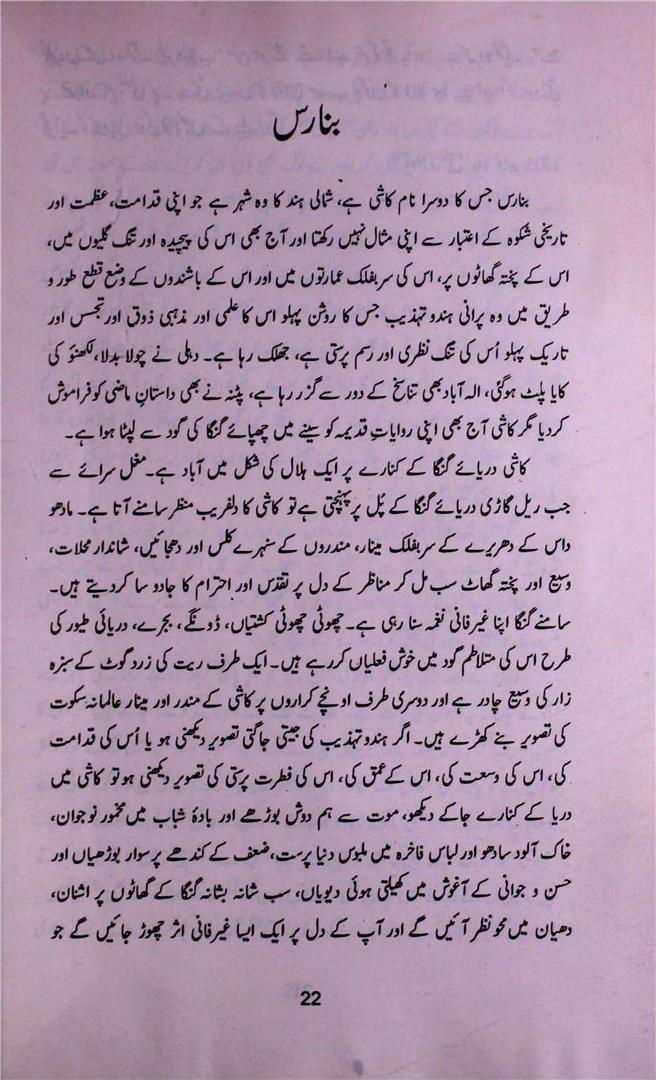 بنارس
بنارس جس کا دوسرا نام کاشی ہے، شمالی ہند کا وہ شہر ہے جو اپنی قدامت، عظمت اور
تاریخی شکوہ کے اعتبار سے اپنی مثال نہیں رکھتا اور آج بھی اس کی پیچیدہ اور تنگ گلیوں میں،
اس کے پختہ گھاٹوں پر، اس کی سربفلک عمارتوں میں اور اس کے باشندوں کے وضع قطع طور و
طریق میں وہ پرانی ہندو تہذیب جس کا روشن پہلو اس کا علمی اور مذہبی ذوق اور تجسس اور
تاریک پہلو اُس کی تنگ نظری اور رسم پرستی ہے، جھلک رہا ہے۔ دہلی نے چولا بدلا، لکھنؤ کی
کایا پلٹ ہوگئی، الہ آباد بھی تناسخ کے دور سے گزر رہا ہے، پٹنہ نے بھی داستانِ ماضی کو فراموش
کردیا مگر کاشی آج بھی اپنی روایاتِ قدیمہ کو سینے میں چھپائے گنگا کی گود سے لپٹا ہوا ہے۔
کاشی دریائے گنگا کے کنارے پر ایک ہلال کی شکل میں آباد ہے۔ مغل سرائے سے
جب ریل گاڑی دریائے گنگا کے پُل پر پہنچتی ہے تو کاشی کا دلفریب منظر سامنے آتا ہے۔ مادھو
داس کے دھریرے کے سربفلک مینار، مندروں کے سنہرے کلس اور دھجائیں، شاندار محلات،
وسیع اور پختہ گھاٹ سب مل کر مناظر کے دل پر تقدّس اور احترام کا جادو سا کردیتے ہیں۔
سامنے گنگا اپنا غیرفانی نغمہ سنا رہی ہے۔ چھوٹی چھوٹی کشتیاں، ڈونگے، بجرے، دریائی طیور کی
طرح اس کی متلاطم گود میں خوش فعلیاں کررہے ہیں۔ ایک طرف ریت کی زرد گوٹ کے سبزہ
زار کی وسیع چادر ہے اور دوسری طرف اونچے کراروں پر کاشی کے مندر اور مینار عالمانہ سکوت
کی تصویر بنے کھڑے ہیں۔ اگر ہندو تہذیب کی جیتی جاگتی تصویر دیکھنی ہو یا اُس کی قدامت
کی، اس کی وسعت کی، اس کے عمق کی، اس کی فطرت پرستی کی تصویر دیکھنی ہو تو کاشی میں
دریا کے کنارے جاکے دیکھو، موت سے ہم دوش بوڑھے اور بادۂ شباب میں مخمور نوجوان،
خاک آلود سادھو اور لباس فاخرہ میں ملبوس دنیا پرست، ضعف کے کندھے پر سوار بوڑھیاں اور
حسن و جوانی کے آغوش میں کھیلتی ہوئی دیویاں، سب شانہ بشانہ گنگا کے گھاٹوں پر اشنان،
دھیان میں محو نظر آئیں گے اور آپ کے دل پر ایک ایسا غیرفانی اثر چھوڑ جائیں گے جو
22